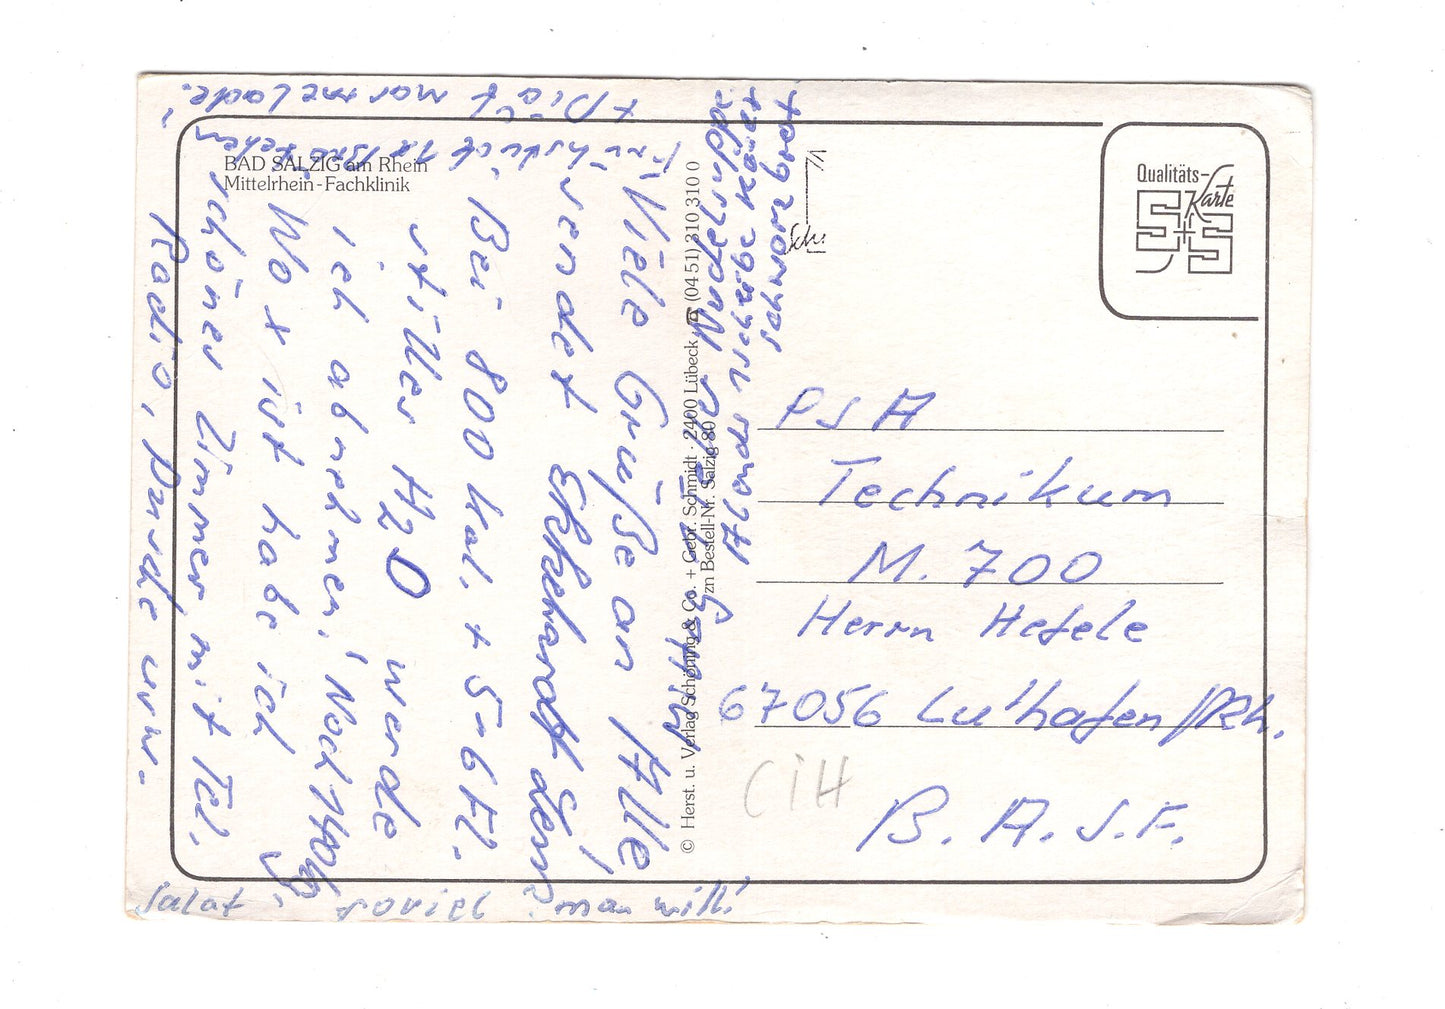 BAD SALZIG am Rhein
Mittelrhein-Fachklinik
Viele Grüße an Alle,
sendet Ekkehardt
Bei 800 kal. + 5-6 Fl.
stilles H2O werde
ich abnehmen! Noch 140kg.
Wo x ist habe ich
schönes Zimmer mit Tel.
Radio, Dusche usw.
Frühstück Brötchen
+ Diät marmelade.
Mittag Nudelsuppe
Abends 1 Scheibe Käse +
schwarzbrot
salat soviel man will!
© Herst. u. Verlag Schöning & Co. + Gebr. Schmidt · 2400 Lübeck ☎ (04 51) 310 310 0
zn Bestell-Nr. Salzig 80
Sch.
Qualitäts-
Karte
S+S
PSA
Technikum
M. 700
Herrn Hefele
67056 Lu'hafen/Rh.
CiH
B. A. S. F.